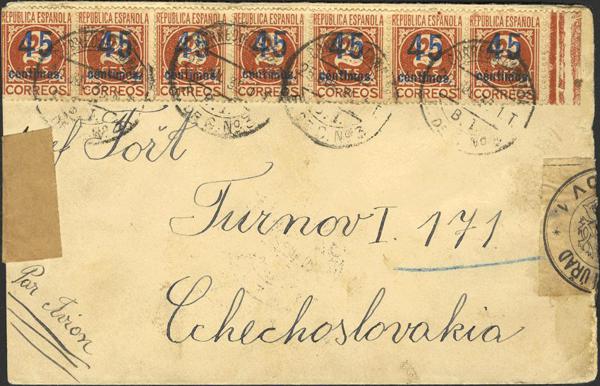 REPUBLICA ESPAÑOLA REPUBLICA ESPAÑOLA REPUBLICA ESPAÑOLA REPUBLICA ESPAÑOLA REPUBLICA ESPAÑOLA REPUBLICA ESPAÑOLA REPUBLICA ESPAÑOLA
45 45 45 45 45 45 45
centimos. centimos. centimos. centimos. centimos. centimos. centimos.
CORREOS CORREOS CORREOS CORREOS CORREOS CORREOS CORREOS
Fořt
Turnov I. 171.
Čechoslovakia
Par Avion
OV 1 *
ÚŘAD